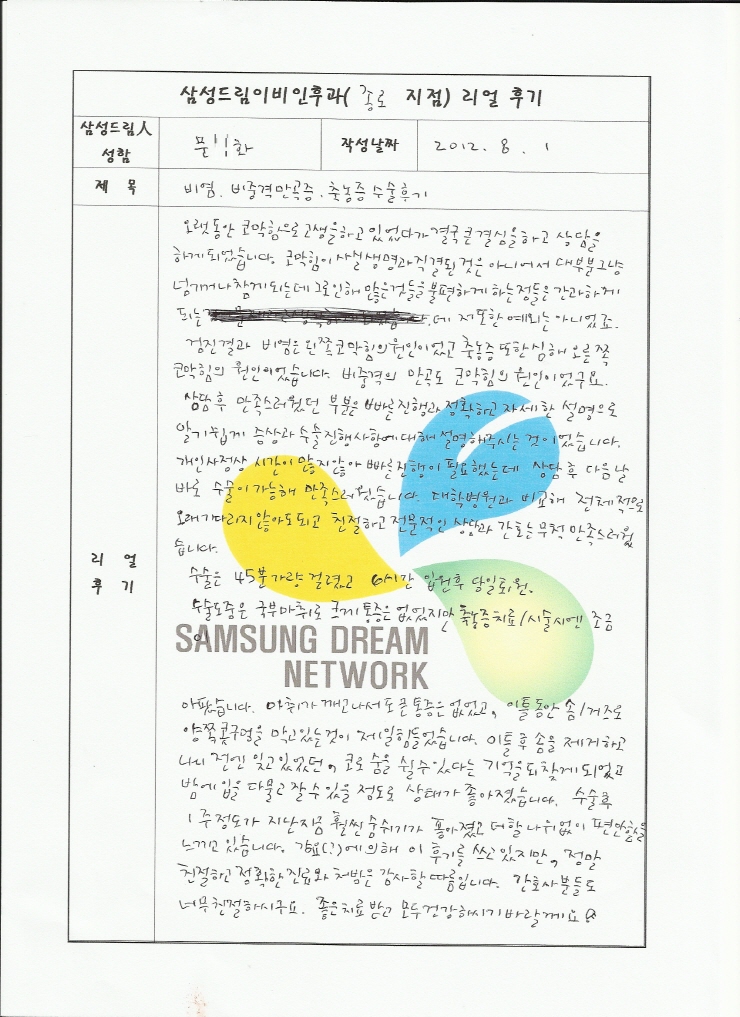 삼성드림이비인후과( 종로 지점) 리얼 후기
삼성드림人
성함
문 화
작성날짜
2012. 8. 1
제 목
비염. 비중격만곡증. 축농증 수술후기
리 얼
후 기
오랫동안 코막힘으로 고생을 하고 있었다가 결국 큰 결심을 하고 상담을
하게 되었습니다. 코막힘이 사실 생명과 직결된 것은 아니어서 대부분 그냥
넘기거나 참게 되는데 그로인해 많은것들을 불편하게 하는 점들은 간과하게
되는 데 저 또한 예외는 아니었죠.
검진결과 비염은 왼쪽 코막힘의 원인이었고 축농증 또한 심해 오른쪽
코막힘의 원인이었습니다. 비중격의 만곡도 코막힘의 원인이었구요.
상담 후 만족스러웠던 부분은 빠른진행과 정확하고 자세한 설명으로
알기 쉽게 증상과 수술진행사항에 대해 설명해주시는 것이었습니다.
개인사정상 시간이 많지않아 빠른진행이 필요했는데 상담 후 다음날
바로 수술이 가능해 만족스러웠습니다. 대학병원과 비교해 전체적으로
오래기다리지 않아도 되고 친절하고 전문적인 상담과 간호는 무척 만족스러웠
습니다.
수술은 45분가량 걸렸고 6시간 입원후 당일퇴원.
수술도중은 국부마취로 크게 통증은 없었지만 축농증치료/시술시엔 조금
SAMSUNG DREAM
NETWORK
아팠습니다. 마취가 깨고나서도 큰 통증은 없었고, 이틀동안 솜/거즈로
양쪽 콧구멍을 막고있는것이 제일 힘들었습니다. 이틀 후 솜을 제거하고
나니 전엔 잊고 있었던, 코로 숨을 쉴 수 있다는 기억을 되찾게 되었고
밤에 입을 다물고 잘 수 있을 정도로 상태가 좋아졌습니다. 수술후
1주정도가 지난 지금 훨씬 숨쉬기가 좋아졌고 더할 나위없이 편안함을
느끼고 있습니다. 강요(?)에 의해 이 후기를 쓰고 있지만, 정말
친절하고 정확한 진료와 처방은 감사할 따름입니다. 간호사분들도
너무 친절하시구요. 좋은치료 받고 모두 건강하시기 바랄게요